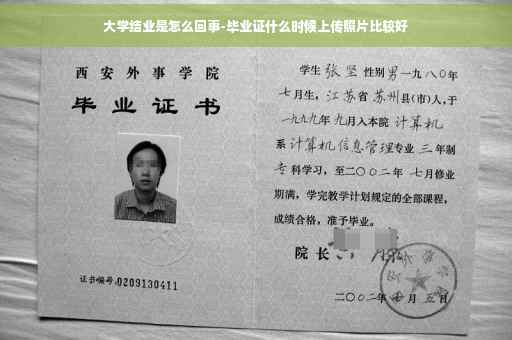 大学结业是怎么回事-毕业证什么时候上传照片比较好
西安外事学院
毕业证书
证书编号:0209130411
学生张坚性别男一九八〇年
七月生，江苏省苏州县(市)人，于
一九九九年九月入本院计算机
系计算机信息管理专业三年制
专科学习，至二〇〇二年七月修业
期满，学完教学计划规定的全部课程，
成绩合格，准予毕业。
院长
二〇〇二年七月五日